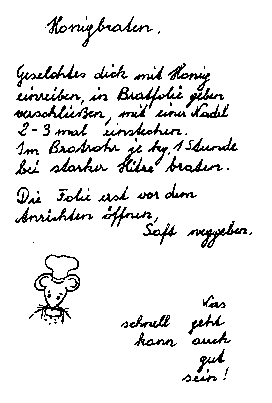 Honigbraten.
Geselchtes dick mit Honig
einreiben, in Bratfolie geben
verschließen, mit einer Nadel
2-3 mal einstechen.
Im Bratrohr je kg 1 Stunde
bei starker Hitze braten.
Die Folie erst vor dem
Anrichten öffnen,
Saft weggeben.
Was
schnell geht
kann auch
gut
sein!